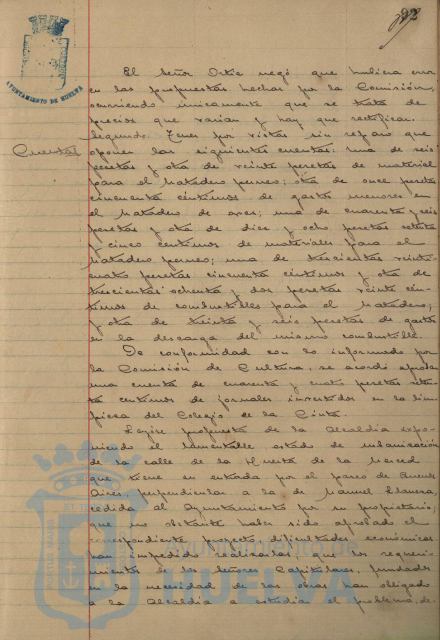 92
AYUNTAMIENTO DE HUELVA
El Señor Ortiz negó que hubiera error
en las propuestas hechas por la Comisión,
ocurriendo únicamente que se trata de
precios que varían y hay que rectificar.
Segundo. Tener por vistas sin reparo que
Cuentas
oponer las siguientes cuentas: una de seis
pesetas y otra de veinte pesetas de material
para el Matadero porneo; otra de once pesetas
cincuenta céntimos de gastos menores en
el Matadero de aves; una de cuarenta y seis
pesetas y otra de diez y ocho pesetas setenta
y cinco céntimos de materiales para el
Matadero porneo; una de trescientas veinti-
cuatro pesetas cincuenta céntimos y otra de
trescientas ochenta y dos pesetas veinte cén-
timos de combustibles para el Matadero;
y otra de treinta y seis pesetas de gastos
en la descarga del mismo combustible.
De conformidad con lo informado por
la Comisión de Cultura, se acordó aprobar
una cuenta de cuarenta y cuatro pesetas
céntimos de jornales invertidos en la lim-
pieza del Colegio de la Cinta.
Leyose propuesta de la Alcaldía expo-
niendo el lamentable estado de urbanización
de la calle de la Huerta de la Merced
que tiene su entrada por el paseo de Buenos
Aires, perpendicular a la de Manuel
cedida al Ayuntamiento por su propietario;
que no obstante haber sido aprobado el
correspondiente proyecto, dificultades económicas
han impedido realizarlas; que los requeri-
mientos de los Señores Capitulares, fundados
en la necesidad de las obras han obligado
a la Alcaldía a estudiar el problema, de-
Ayuntamiento de
HUELVA